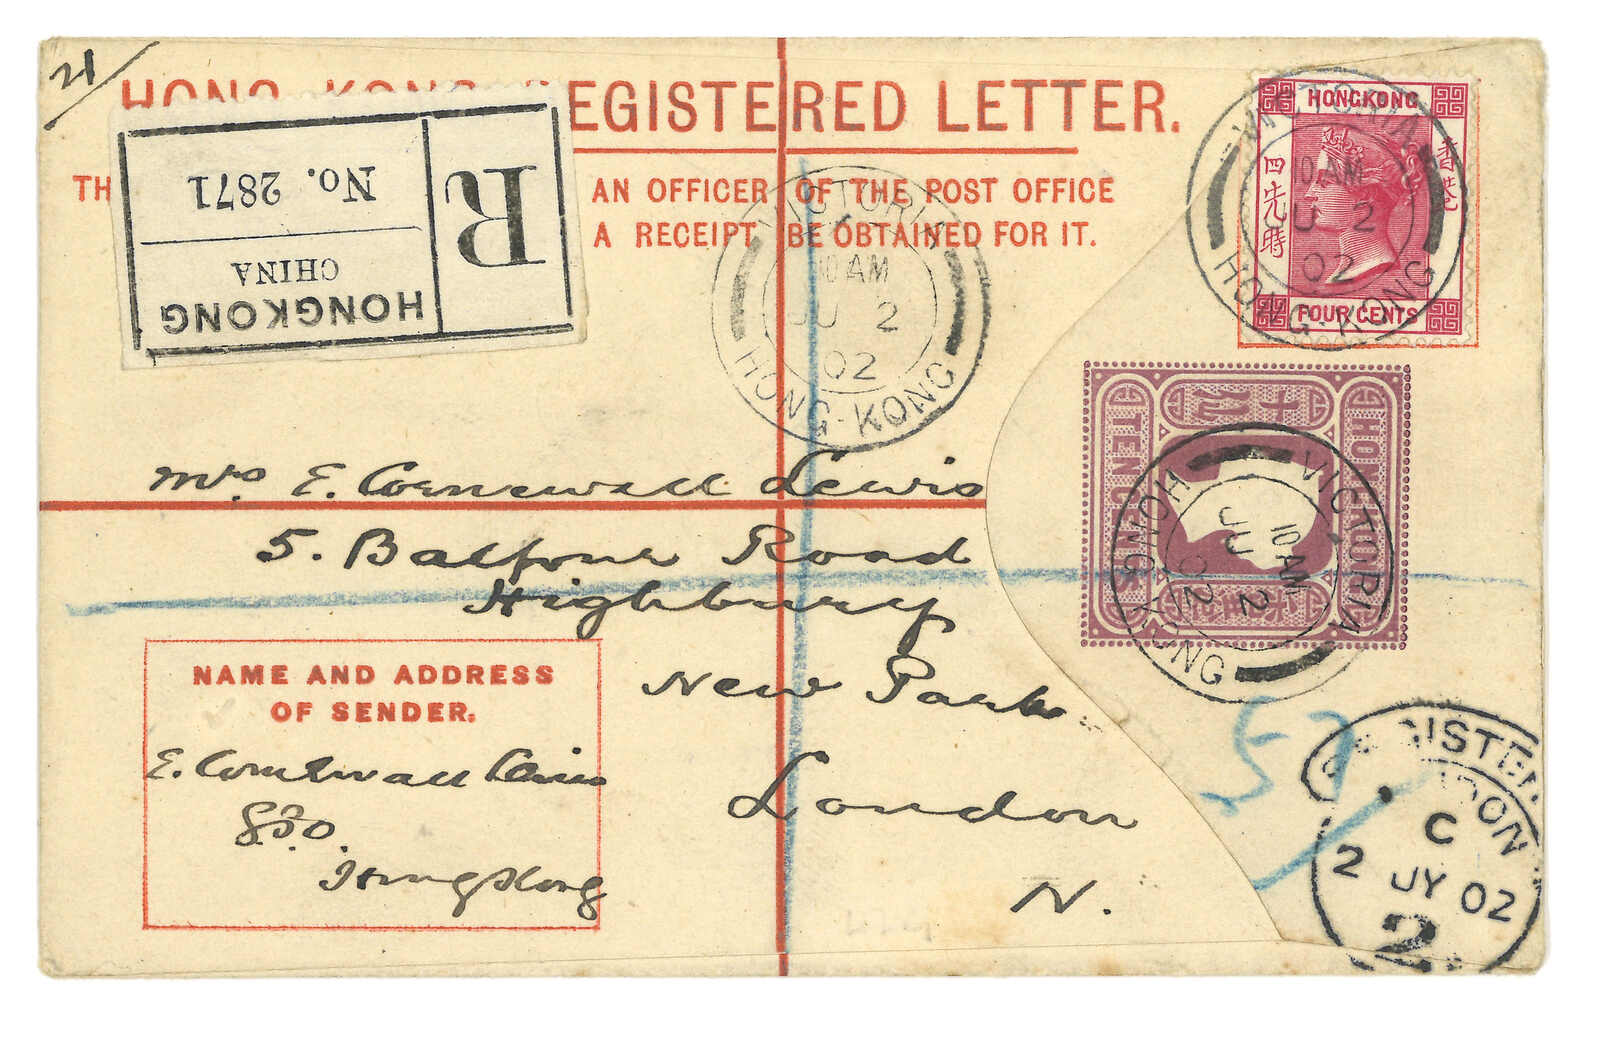 21
HONG KONG REGISTERED LETTER.
TH AN OFFICER OF THE POST OFFICE
A RECEIPT BE OBTAINED FOR IT.
R
No. 2871
HONGKONG
CHINA
VICTORIA
10 AM
JU 2
02
HONG-KONG
HONGKONG
香港
四先時
FOUR CENTS
VICTORIA
10 AM
JU 2
02
HONG-KONG
HONG KONG
TEN CENTS
VICTORIA
10 AM
JU 2
02
HONG KONG
Mrs E. Cornewall Lewis
5. Balfour Road
Highbury
New Park
London
N.
NAME AND ADDRESS
OF SENDER.
E. Cornewall Lewis
G.P.O.
Hong Kong
REGISTERED
LONDON
C
2 JY 02
2